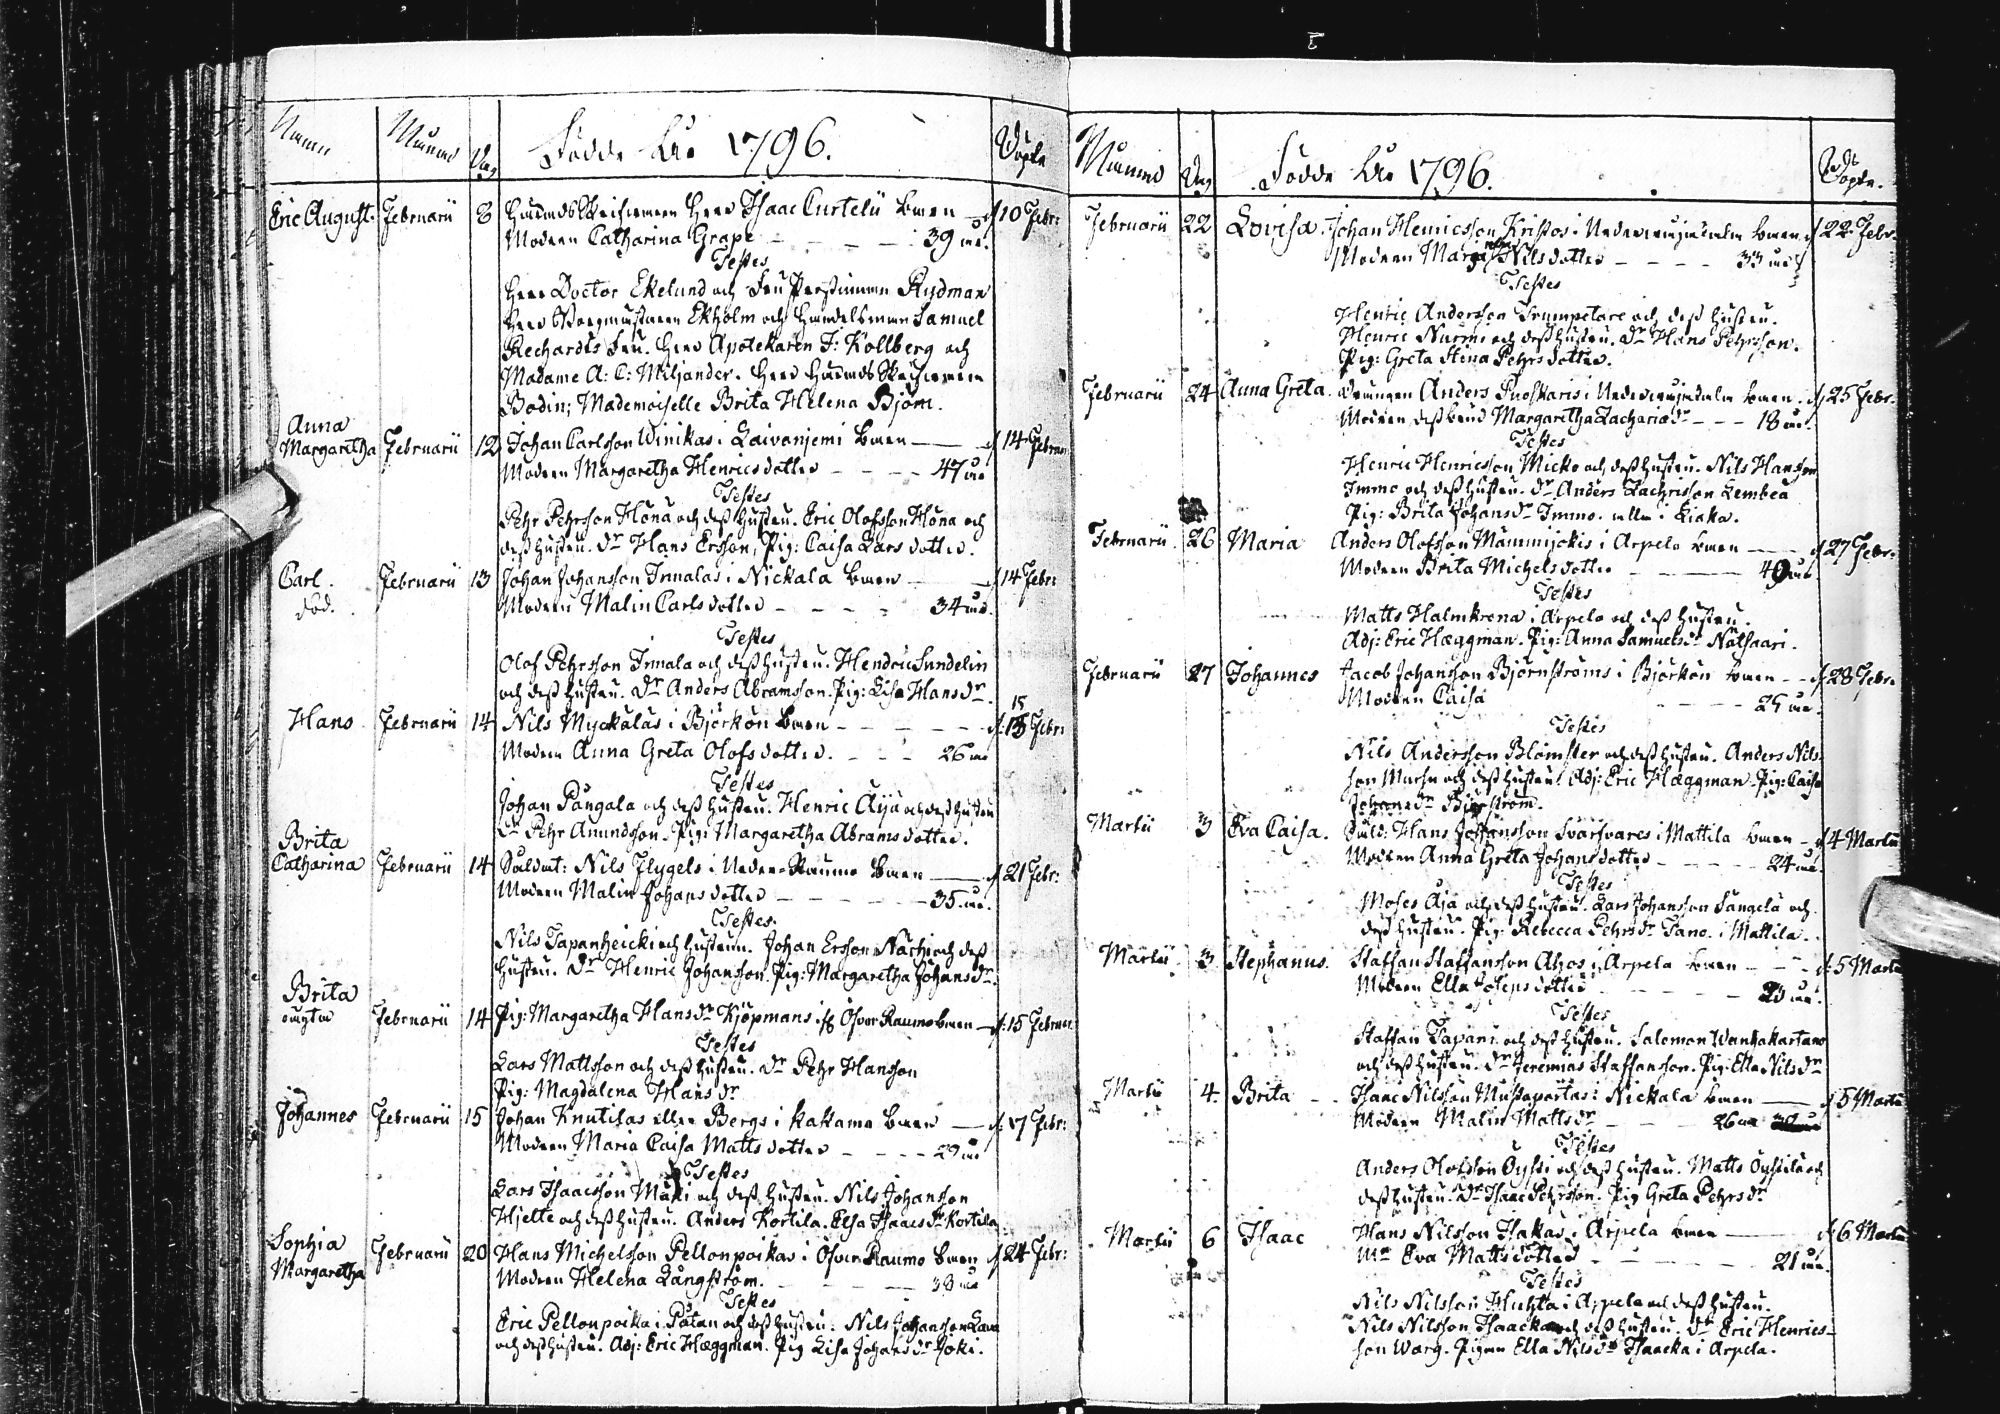 Namn Månad Dag Födde År 1796. Döpte
Eric August. Februarii 8 Häradsskrifvaren Herr Isaac Curtelii barn 10 Febr:
Modren Catharina Grape 39 år.
Testes
Herr Doctor Ekelund och Fru Prostinnan Rydman
Herr Borgmästaren Ekholm och Handelsman Samuel
Rechardts Fru. Herr Apotekaren J: Kollberg och
Madame A: C: Miljander. Herr Härads Skrifvaren
Bodin; Mademoiselle Brita Helena Björn.
Anna
Margaretha Februarii 12 Johan Carlsson Winikas i Laivanjemi barn 14 Februar
Modren Margaretha Henricsdotter 47 år
Testes
Pehr Pehrsson Hona och dess hustru. Eric Olofsson Hona och
dess hustru. Dr Hans Ersson, Pig: Caisa Lars dotter.
Carl. Februarii 13 Johan Johansson Irmalas i Nickala barn 14 Febr:
död. Modren Malin Carls dotter 34 år.
Testes
Olof Pehrsson Irmala och dess hustru. Hendric Sundelin
och dess hustru. Dr Anders Abramsson. Pig: Lisa Hansdr
15
Hans Februarii 14 Nils Myckalas i Björkön barn 13 Febr:
Modren Anna Greta Olofs dotter. 26 år
Testes
Johan Pangala och dess hustru. Henric Äijä och dess hustru
Dr Pehr Amundsson. Pig: Margaretha Abrams dotter.
Brita
Catharina Februarii 14 Soldat: Nils Flygels i Neder-Raumo barn 21 Febr:
Modren Malin Johans dotter 35 år.
Testes.
Nils Tapanheicki och hustrun. Johan Ersson Närhi och dess
hustru. Dr Henric Johansson. Pig: Margaretha Johansdr.
Brita
oägta Februarii 14 Pig: Margaretha Hansdr Kjöpmans i Öfver Raumo barn 15 Februar
Testes
Lars Mattsson och dess hustru. Dr Pehr Hansson
Pig: Magdalena Hansdr
Johannes Februarii 15 Johan Knutilas eller Bergs i Kakamo barn 17 Febr:
Modren Maria Caisa Matts dotter 29 år
Testes
Lars Isaacsson Mäki och dess hustru. Nils Johansson
Hjelte och dess hustru. Anders Kortila. Elsa Isaacsdr Kortila
Sophia Februarii 20 Hans Michelsson Pellonpoikas i Öfver Raumo barn 24 Febr:
Margaretha Modren Helena Långström. 38 år
Testes
Eric Pellonpoika i Påtan och dess hustru. Nils Johansson
och dess hustru. Adj: Eric Hæggman. Pig Lisa Johansdr Joki.
Månad Dag Födde År 1796. Döpte.
Februarii 22 Lovisa Johan Henricsson Kristos i Nedervojackala barn 22 Febr.
Modren Marga retha Nils dotter 33 år
Testes
Henric Andersson Trumpetare och dess hustru.
Henric Nurmi och dess hustru. Dr Hans Pehrsson.
Pig: Greta Stina Pehrs dotter.
Februarii 24 Anna Greta. Drängen Anders Puoskaris i Nedervojackala barn. 25 Febr.
Modren dess brud Margaretha Zachariædr 18 år.
Testes
Henric Henricsson Micko och dess hustru. Nils Hansson
Immo och dess hustru. Dr Anders Zachrisson Lembea
Pig: Brita Johansdr Immo. alla i Liaka.
Februarii. 26 Maria Anders Olofsson Mämmijckis i Arpela barn 27 Febr:
Modren Brita Michelsdotter 40 år
Testes
Matts Halmkrona i Arpela och dess hustru.
Adj: Eric Hæggman. Pig: Anna Samuelsdr Nätsaari.
Februarii 27 Johannes Jacob Johansson Björnströms i Björkön barn 28 Febr.
Modren Caisa 25 år.
Testes
Nils Andersson Blomster och dess hustru. Anders Nils-
son Marsu och dess hustru. Adj: Eric Hæggman. Pig: Caisa
Johansdr Björström.
Martii 3 Eva Caisa. Sold: Hans Johansson Svarfvares i Mattila barn 4 Martii
Modren Anna Greta Johansdotter 24 år.
Testes
Moses Äijä och dess hustru. Lars Johansson Sangela och
dess hustru. Pig: Rebecca Pehrsdr Tano. i Mattila.
Martii 3 Stephanus. Staffan Staffansson Ahos i Arpela barn 5 Martii
Modren Ella Josepsdotter år.
Testes
Staffan Tapani och dess hustru. Salomon Wanhakartano
och dess hustru. Dr Jeremias Staffansson. Pig: Ella Nilsdr
Martii 4 Brita Isaac Nilsson Mustaparta i Nickala barn 5 Martii
Modren Malin Mattsdr 26 år
Testes
Anders Olofsson Öysti och dess hustru. Matts Öystilä och
dess hustru. Dr Isaac Pehrsson. Pig Greta Pehrsdr
Martii 6 Isaac Hans Nilsson Isakas i Arpela barn 6 Martii
Mr Eva Mattsdotter 21 år.
Testes
Nils Nilsson Huhta i Arpela och dess hustru.
Nils Nilsson Isaacka och dess hustru. Dr Eric Henrics-
son Warg. Pigan Ella Nilsdr Isaacka i Arpela.